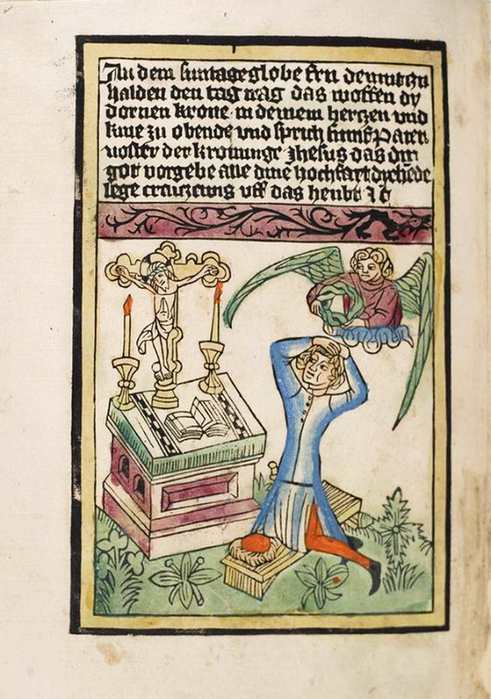 An dem suntage globe
halden den tag trag das woffen dy
dornen krone in deinem hertzen und
knie zu obende vnd sprich funf Pater
noster der kronunge Jhesus das dir
got vorgebe alle dine hochfart
lege creutzewis vff das heubt